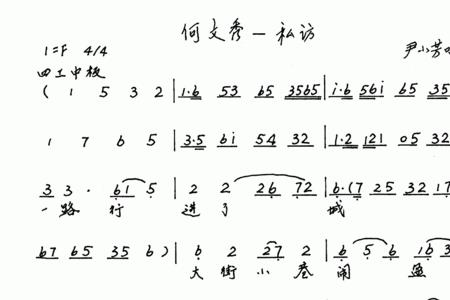 何文秀－私访
1=F 4/4 尹小芳
四工中板
( 1 5 3 2 | 1·6 53 65 3565 | i·6 56i 65 35
1 7 6 5 | 3·5 6i 54 32 | 1·2 121 05 32
3 3· 61 5 | 2 2 26 72 | 6·(7 25 32 17
一路 行 进 了 城
67 65 35 6) | 6 2 27 2 | 6 5 6 16 3
大 街 小 巷 闹 盈